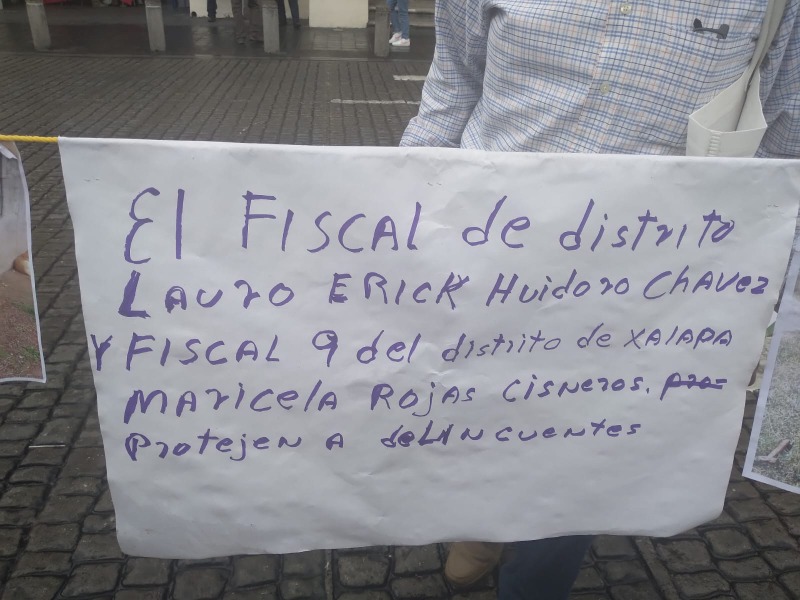 El FISCAL de distrito
LAURO ERICK Huidoro CHAVez
Y FISCAL 9 del distrito de XALAPA
MARicelA ROJAS CisNeros. pro-
PROtejeN A deLINcueNtes